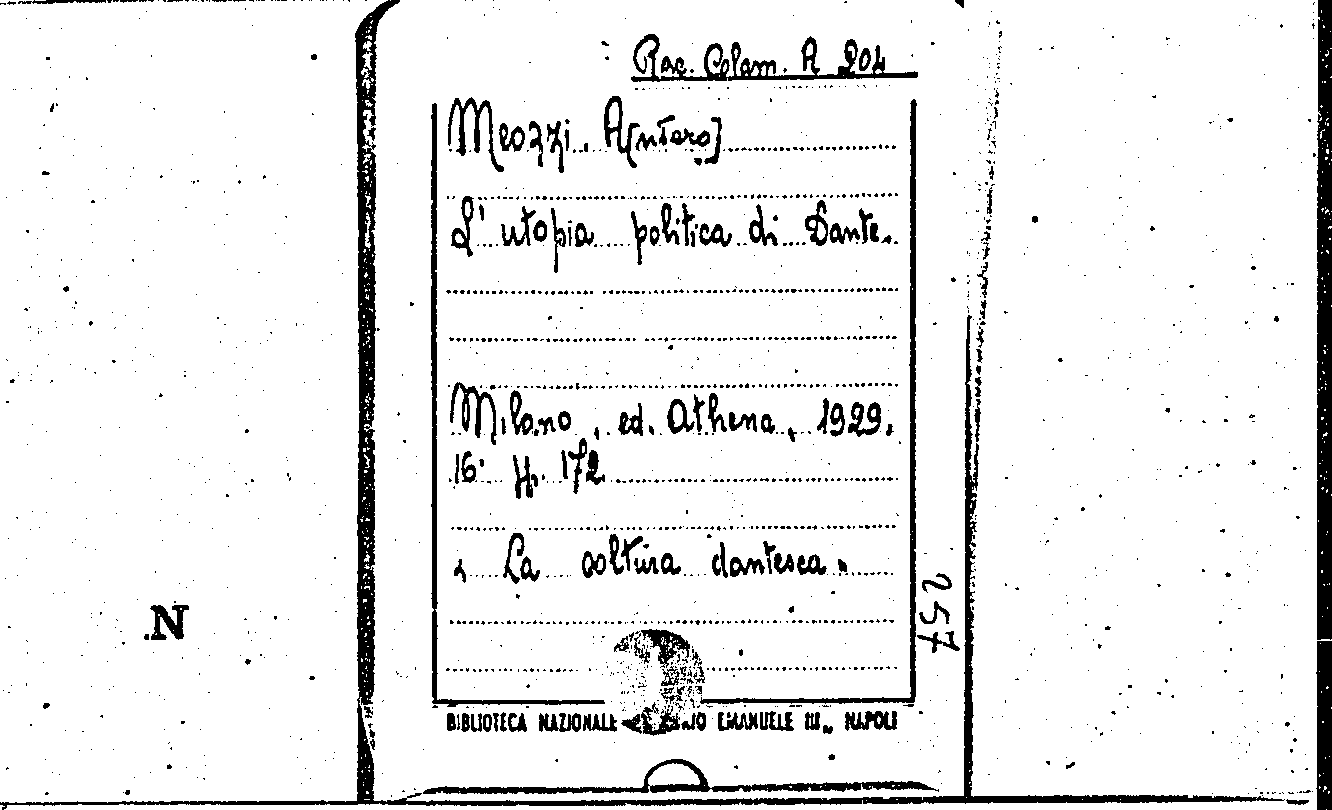 Rac. Colom. A 204
Meozzi, A[ntero]
L'utopia politica di Dante.
Milano, ed. Athena, 1929.
16° pp. 172
« La coltura dantesca »
257
N
BIBLIOTECA NAZIONALE EMANUELE III„ NAPOLI